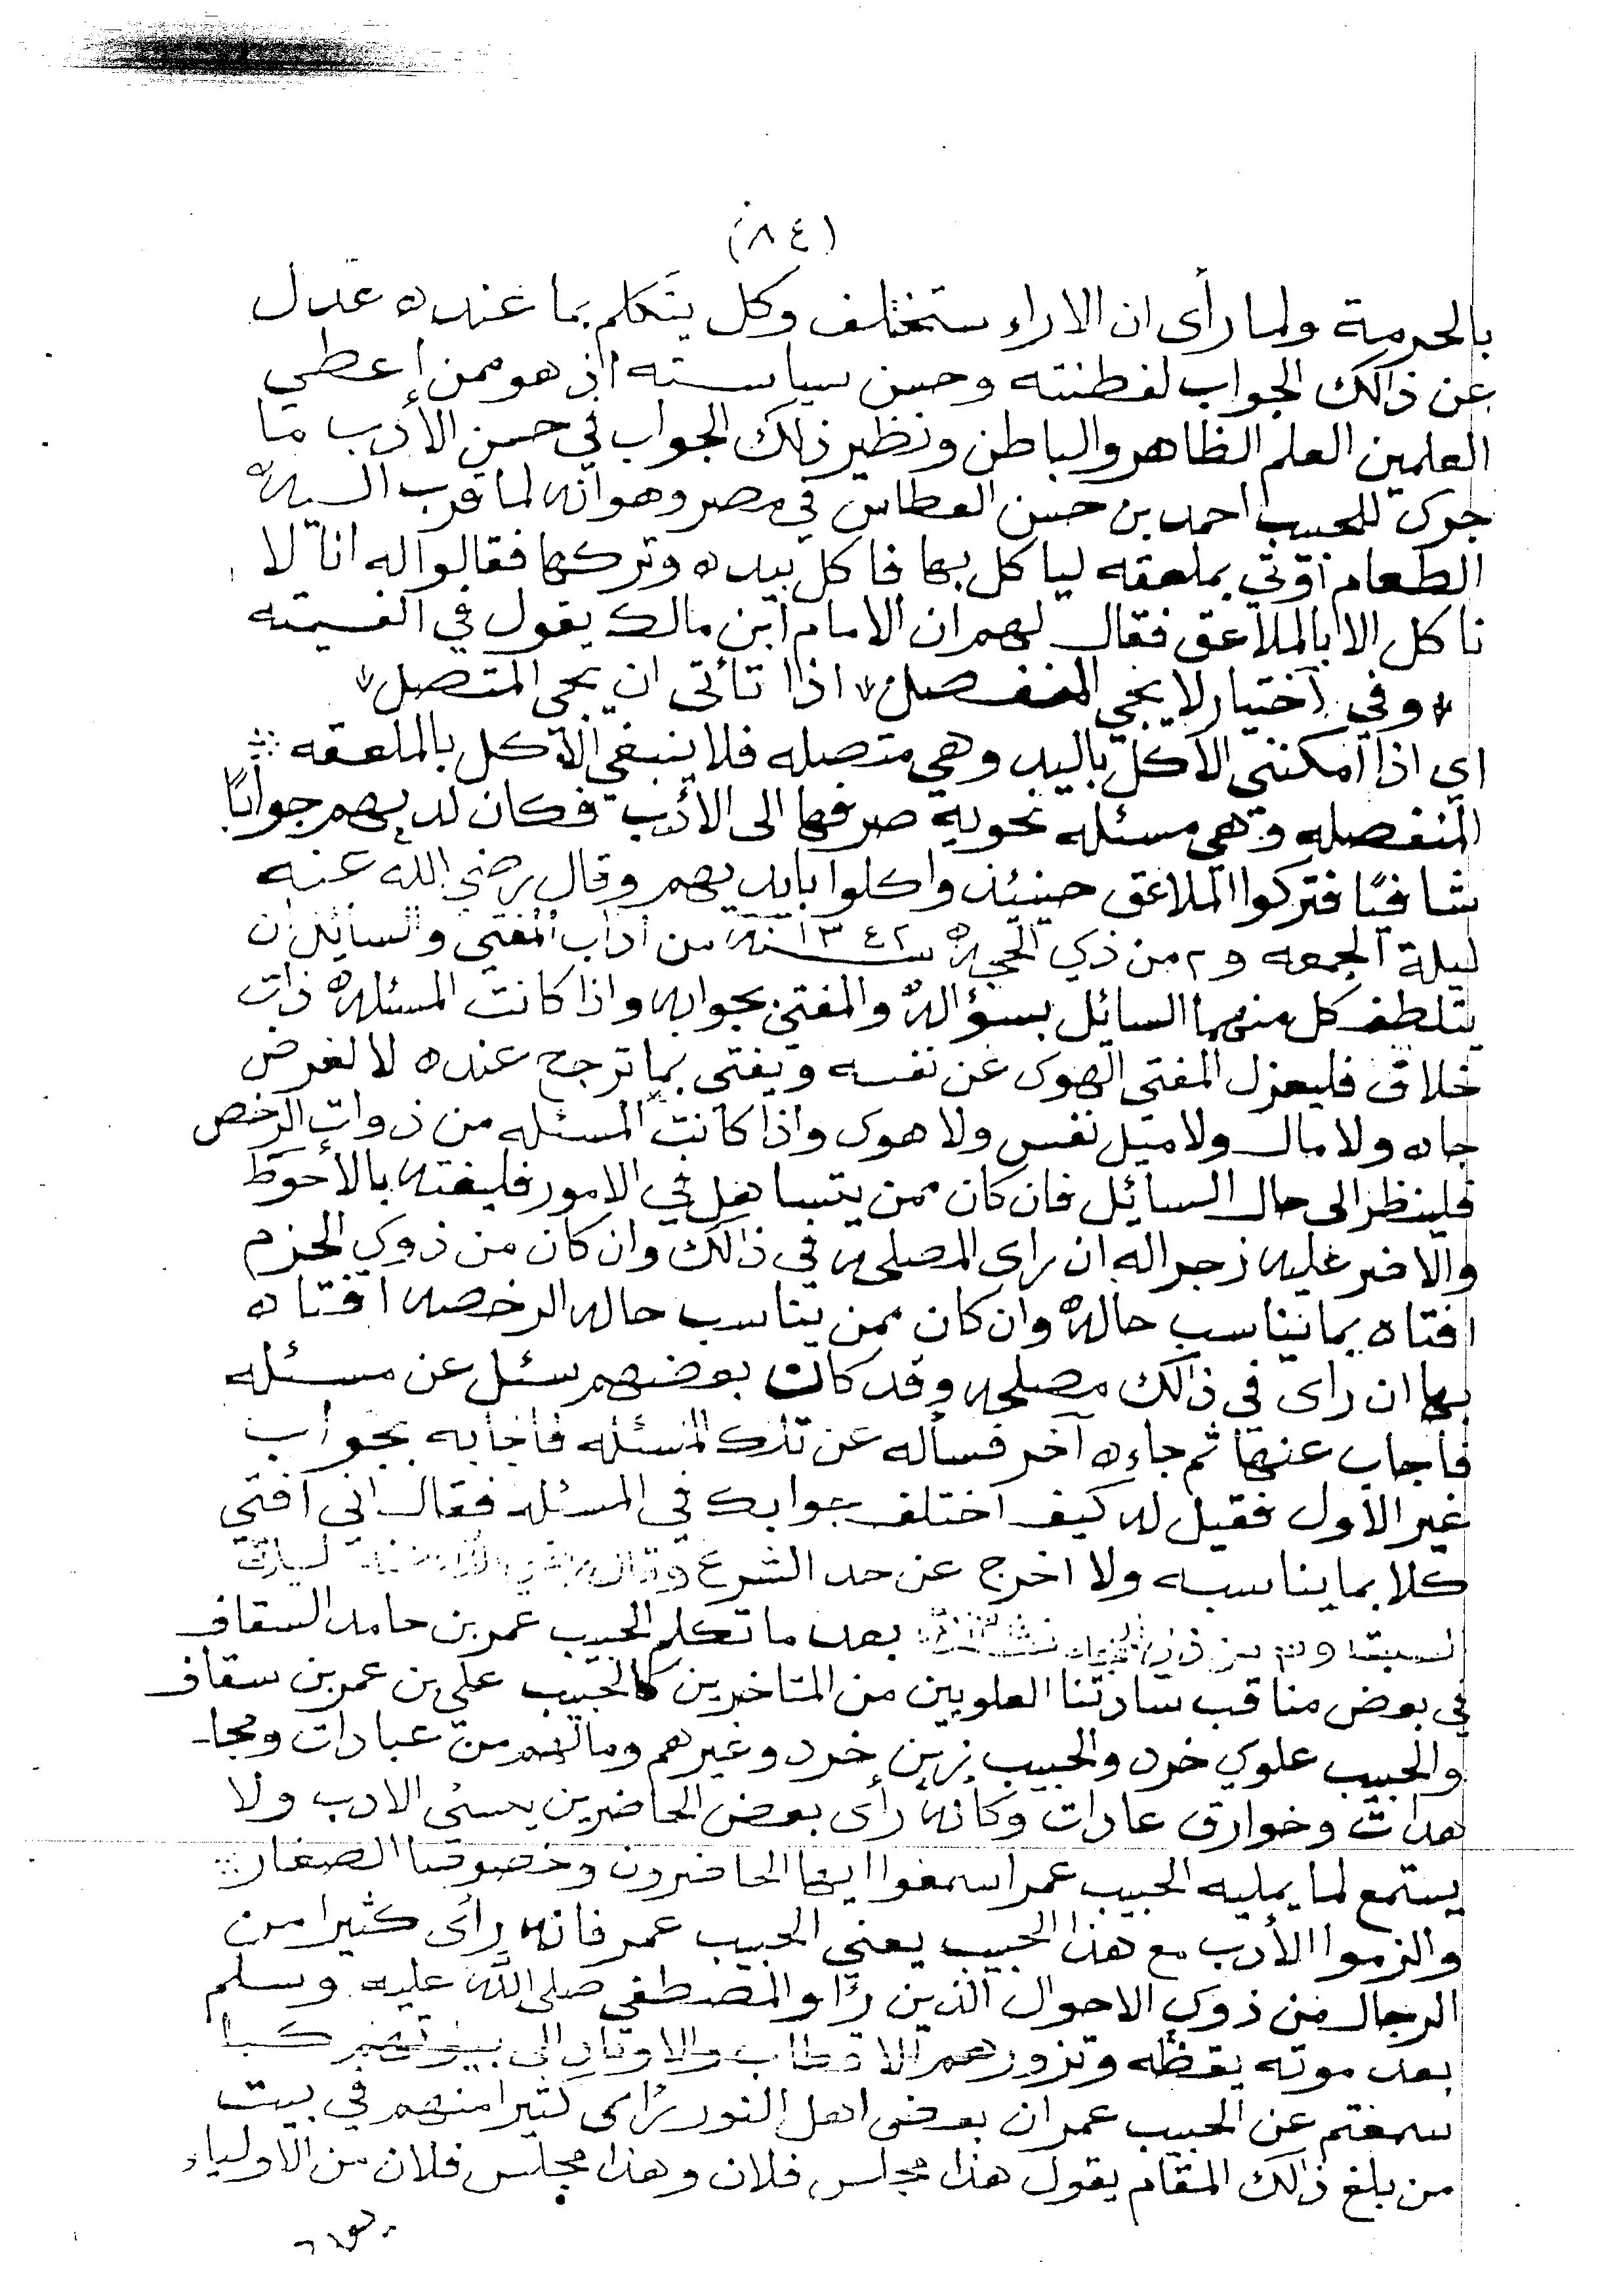 (٨٤)
بالحرمة ولما رأى ان الاراء ستختلف وكل يتكلم بما عنده عدل
عن ذالك الجواب لفطنته وحسن سياسته اذ هو ممن إعطي
العلمين العلم الظاهر والباطن ونظير ذلك الجواب في حسن الأدب ما
جرى للحبيب احمد بن حسن العطاس في مصر وهو انه لما قرب اليه
الطعام أوتي بملعقه لياكل بها فاكل بيده وتركها فقالوا له انا لا
ناكل الا بالملاعق فقال لهم ان الامام ابن مالك يقول في الفيته
وفي اختيار لا يجي المنفصل اذا تأتى ان يجي المتصل
اي اذا امكنني الاكل باليد وهي متصله فلا ينبغي الاكل بالملعقه
المنفصله وهي مسئله نحوية صرفها الى الأدب فكان لديهم جوابًا
شافيًا فتركوا الملاعق حينيئذ واكلوا بايديهم وقال رضي الله عنه
ليلة الجمعه و٢ من ذي الحجه سنة ١٣٤٢ من اداب المفتي والسائل ان
يتلطف كل منهما السائل بسؤاله والمفتي بجوابه واذا كانت المسئله ذات
خلاف فليعزل المفتي الهوى عن نفسه ويفتي بما ترجح عنده لا لغرض
جاه ولا مال ولا ميل نفس ولا هوى واذا كانت المسئله من ذوات الرخص
فلينظر الى حال السايئل فان كان ممن يتساهل في الامور فليفته بالأحوط
والاضر عليه زجرا له ان راى المصلحه في ذالك وان كان من ذوي الحزم
افتاه بما يناسب حاله وان كان ممن يناسب حاله الرخصه افتاه
بها ان راى في ذالك مصلحه وقد كان بعضهم سئل عن مسئله
فأجاب عنها ثم جاءه آخر فسأله عن تلك المسئله فأجابه بجواب
غير الأول فقيل له كيف اختلف جوابك في المسئله فقال اني افتي
كلا بما يناسبه ولا اخرج عن حد الشرع وقال رضي الله عنه ليلة
السبت بعد ما تكلم الحبيب عمر بن حامد السقاف
في بعض مناقب سادتنا العلويين من المتاخرين كالحبيب علي بن عمر بن سقاف
والحبيب علوي خرد والحبيب زين خرد وغيرهم وما لهم من عبادات ومجا
هدات وخوارق عادات وكأنه رأى بعض الحاضرين يسئ الادب ولا
يستمع لما يمليه الحبيب عمر اسمعوا ايها الحاضرون وخصوصا الصغار
والزموا الأدب مع هذا الحبيب يعني الحبيب عمر فانه رأى كثيرا من
الرجال من ذوي الاحوال الذين رأوا المصطفى صلى الله عليه وسلم
بعد موته يقظه وتزورهم الاقطاب والاوتار الى بيوتهم كما
سمعتم عن الحبيب عمر ان بعض اهل النور رأى كثيرا منهم في بيت
من بلغ ذالك المقام يقول هذا مجلس فلان وهذا مجلس فلان من الاولياء